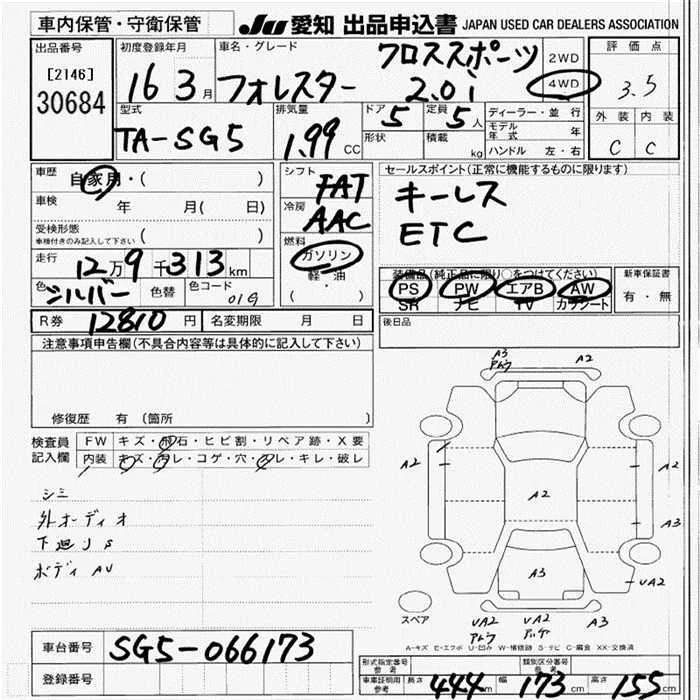 車内保管・守衛保管 JU 愛知 出品申込書 JAPAN USED CAR DEALERS ASSOCIATION
出品番号 初度登録年月 車名・グレード 評価点
[2146] 30684 16 3月 フォレスター クロススポーツ 2.0i 2WD 4WD 3.5
型式 排気量 ドア 定員 ディーラー・並行 外装 内装
TA-SG5 1.99 CC 5 5人 モデル年式 年 C C
形状 積載 kg ハンドル 左・右
車歴 自家用・( ) シフト FAT セールスポイント(正常に機能するものに限ります)
車検 年 月( 日) 冷房 AAC キーレス
受検形態 ( ) ETC
車検付きのみ記入して下さい 燃料 ガソリン
走行 12万9千313km 軽・油 装備品(純正品に限り○をつけてください) 新車保証書
色 シルバー 色替 色コード 019 ( ・ ) PS PW エアB AW 有・無
SR ナビ TV カワシート
R券 12810円 名変期限 月 日 後日品
注意事項申告欄(不具合内容等は具体的に記入して下さい)
修復歴 有 (箇所
検査員 FW キズ・飛石・ヒビ割・リペア跡・X要
記入欄 内装 キズ・汚レ・コゲ・穴・スレ・キレ・破レ
シミ
外オーディオ
下廻りS
ボディAU
A3 A2
A2 A2 A2
A3
A3 UA2
スペア UA2 UA2 A3
A-キズ E-エクボ U-凹み W-補修跡 S-サビ C-腐食 XX-交換済
車台番号 SG5-066173
登録番号
形式指定番号 参考 類別区分番号 参考
車車証明用 参考 長さ 444cm 幅 173cm 高さ 155cm